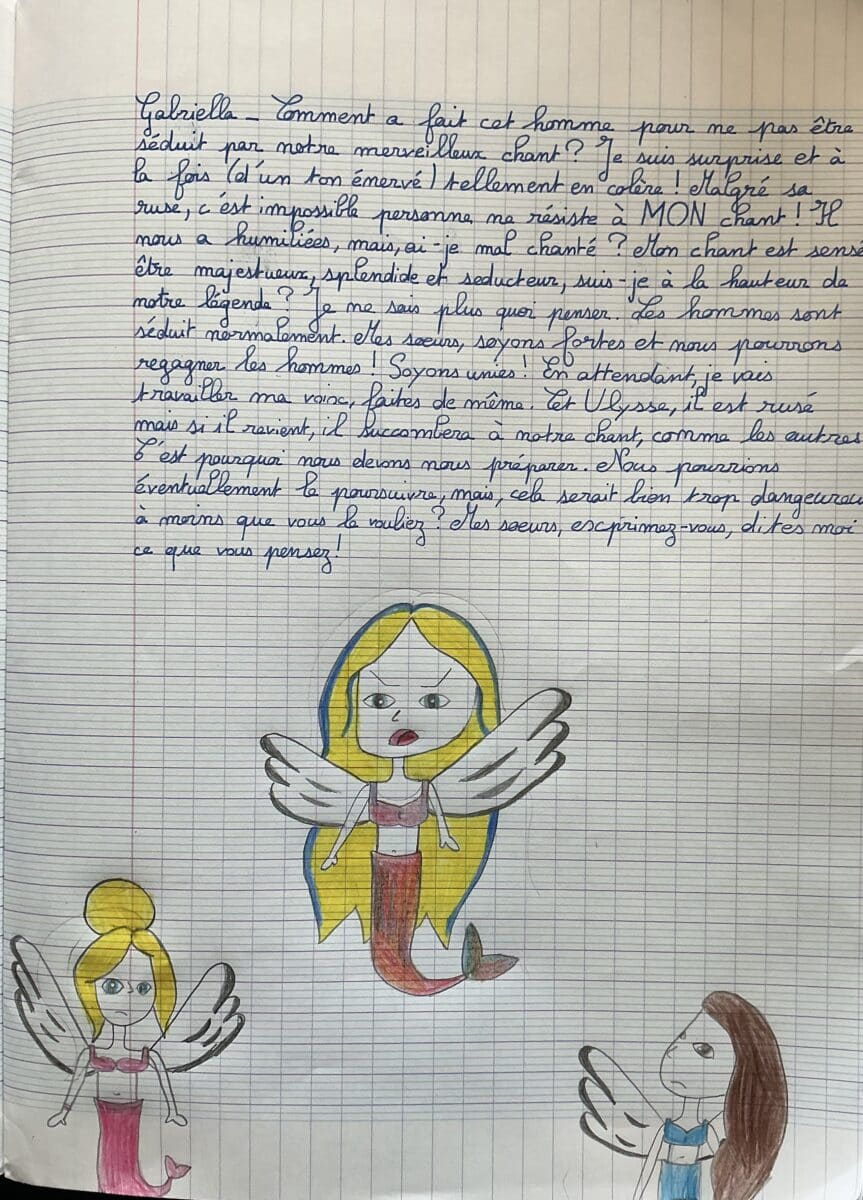 Gabriella - Comment a fait cet homme pour ne pas être
séduit par notre merveilleux chant ? Je suis surprise et à
la fois (d'un ton énervé) tellement en colère ! Malgré sa
ruse, c'est impossible personne ne résiste à MON chant ! Il
nous a humiliées, mais, ai-je mal chanté ? Mon chant est sensé
être majestueux, splendide et seducteur, suis-je à la hauteur de
notre légende ? Je ne sais plus quoi penser. Les hommes sont
séduit normalement. Mes soeurs, soyons fortes et nous pourrons
regagner les hommes ! Soyons unies ! En attendant, je vais
travailler ma voix, faites de même. Et Ulysse, il est rusé
mais si il revient, il succombera à notre chant, comme les autres
C'est pourquoi nous devons nous préparer. Nous pourrions
éventuellement le poursuivre, mais, cela serait bien trop dangeureux
à moins que vous le vouliez ? Mes soeurs, exprimez-vous, dites moi
ce que vous pensez !